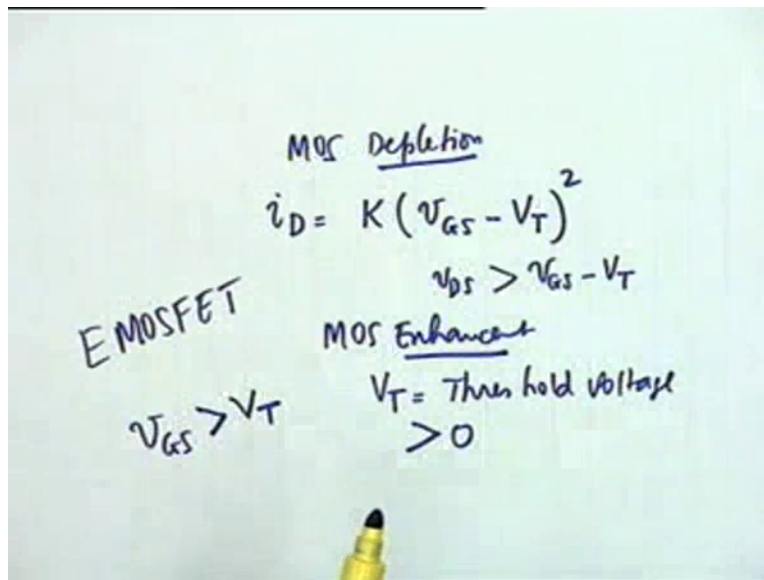 MOS Depletion
i_D = K(v_GS - V_T)^2
v_DS > v_GS - V_T
EMOSFET
MOS Enhancent
V_T = Threshold voltage
> 0
v_GS > V_T